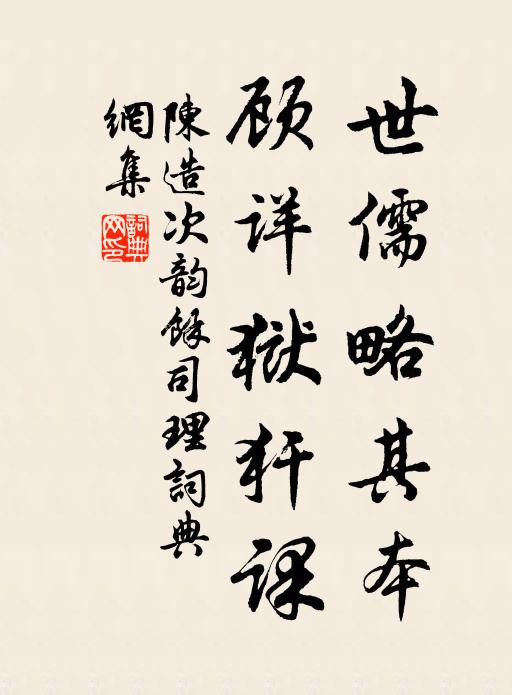 世儒略其本
顾详獄犴课
陳造次韵餘司理詞典
網集
詞典网印